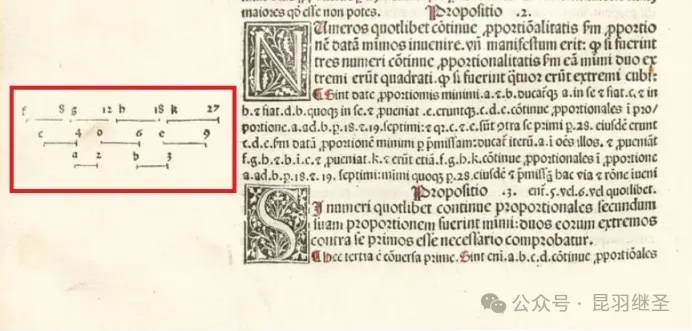 maiores qď esse non potes. Propositio .2.
NUmeros quotlibet cōtinue ꝓportiōalitatis ſm ꝓportio
nē datā mimos inuenire. vñ manifestum erit: ꝙ si fuerint
tres numeri cōtinue ꝓportionalitatis ſm eā mimi duo ex
tremi erūt quadrati. ꝙ si fuerint q̄tuor erūt extremi cubi:
Sint date ꝓportionis minimi .a.&.b. ducaťqꝫ a. in se & fiat.c. & in
b. & fiat.d.b. quoqꝫ in se. & ꝓueniat .e. eruntqꝫ.c.d.e. cōtinue ꝓportionales ī pro/
portione.a.ad.b.p.18.&.19.septimi: & qꝛ.c.&.e. sūt ɔtra se primi p.28. eiusdē erunt
c.d.e. ſm datā ꝓportionē minimi p p̄missam: ducať iterū.a.ī oēs illos. & ꝓueniāt
f.g.h. & b.ī.e. & ꝓueniat.k. & erūt etiā.f.g.h.k. cōtinue ꝓportionales ī ꝓportione
a.ad.b.p.18.&.19. septimi: mimi quoqꝫ p.28. eiusdē & p̄missā hac via & rōne iueni
Propositio .3. enť.5.vel.6.vel quotlibet.
SI numeri quotlibet continue proportionales secundum
suam proportionem fuerint mimi: duos eorum extremos
contra se primos esse necessario comprobatur.
Hec tertia ē ɔuersa prime. Sint eni.a.b.c.d. cōtinue ꝓportiōales
f 8 g 12 h 18 k 27
c 4 o 6 e 9
a 2 b 3
公众号 · 昆羽继圣